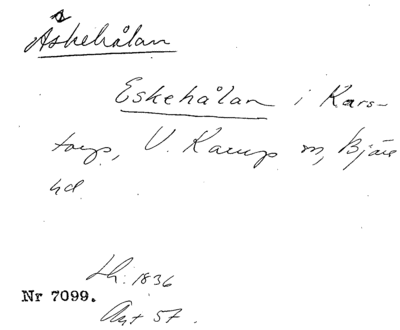 Äskehålan
Eskehålan i Kars-
torp, V. Karup sn, Bjäre
hd
Lh: 1836
Nr 7099.
Akt 57.